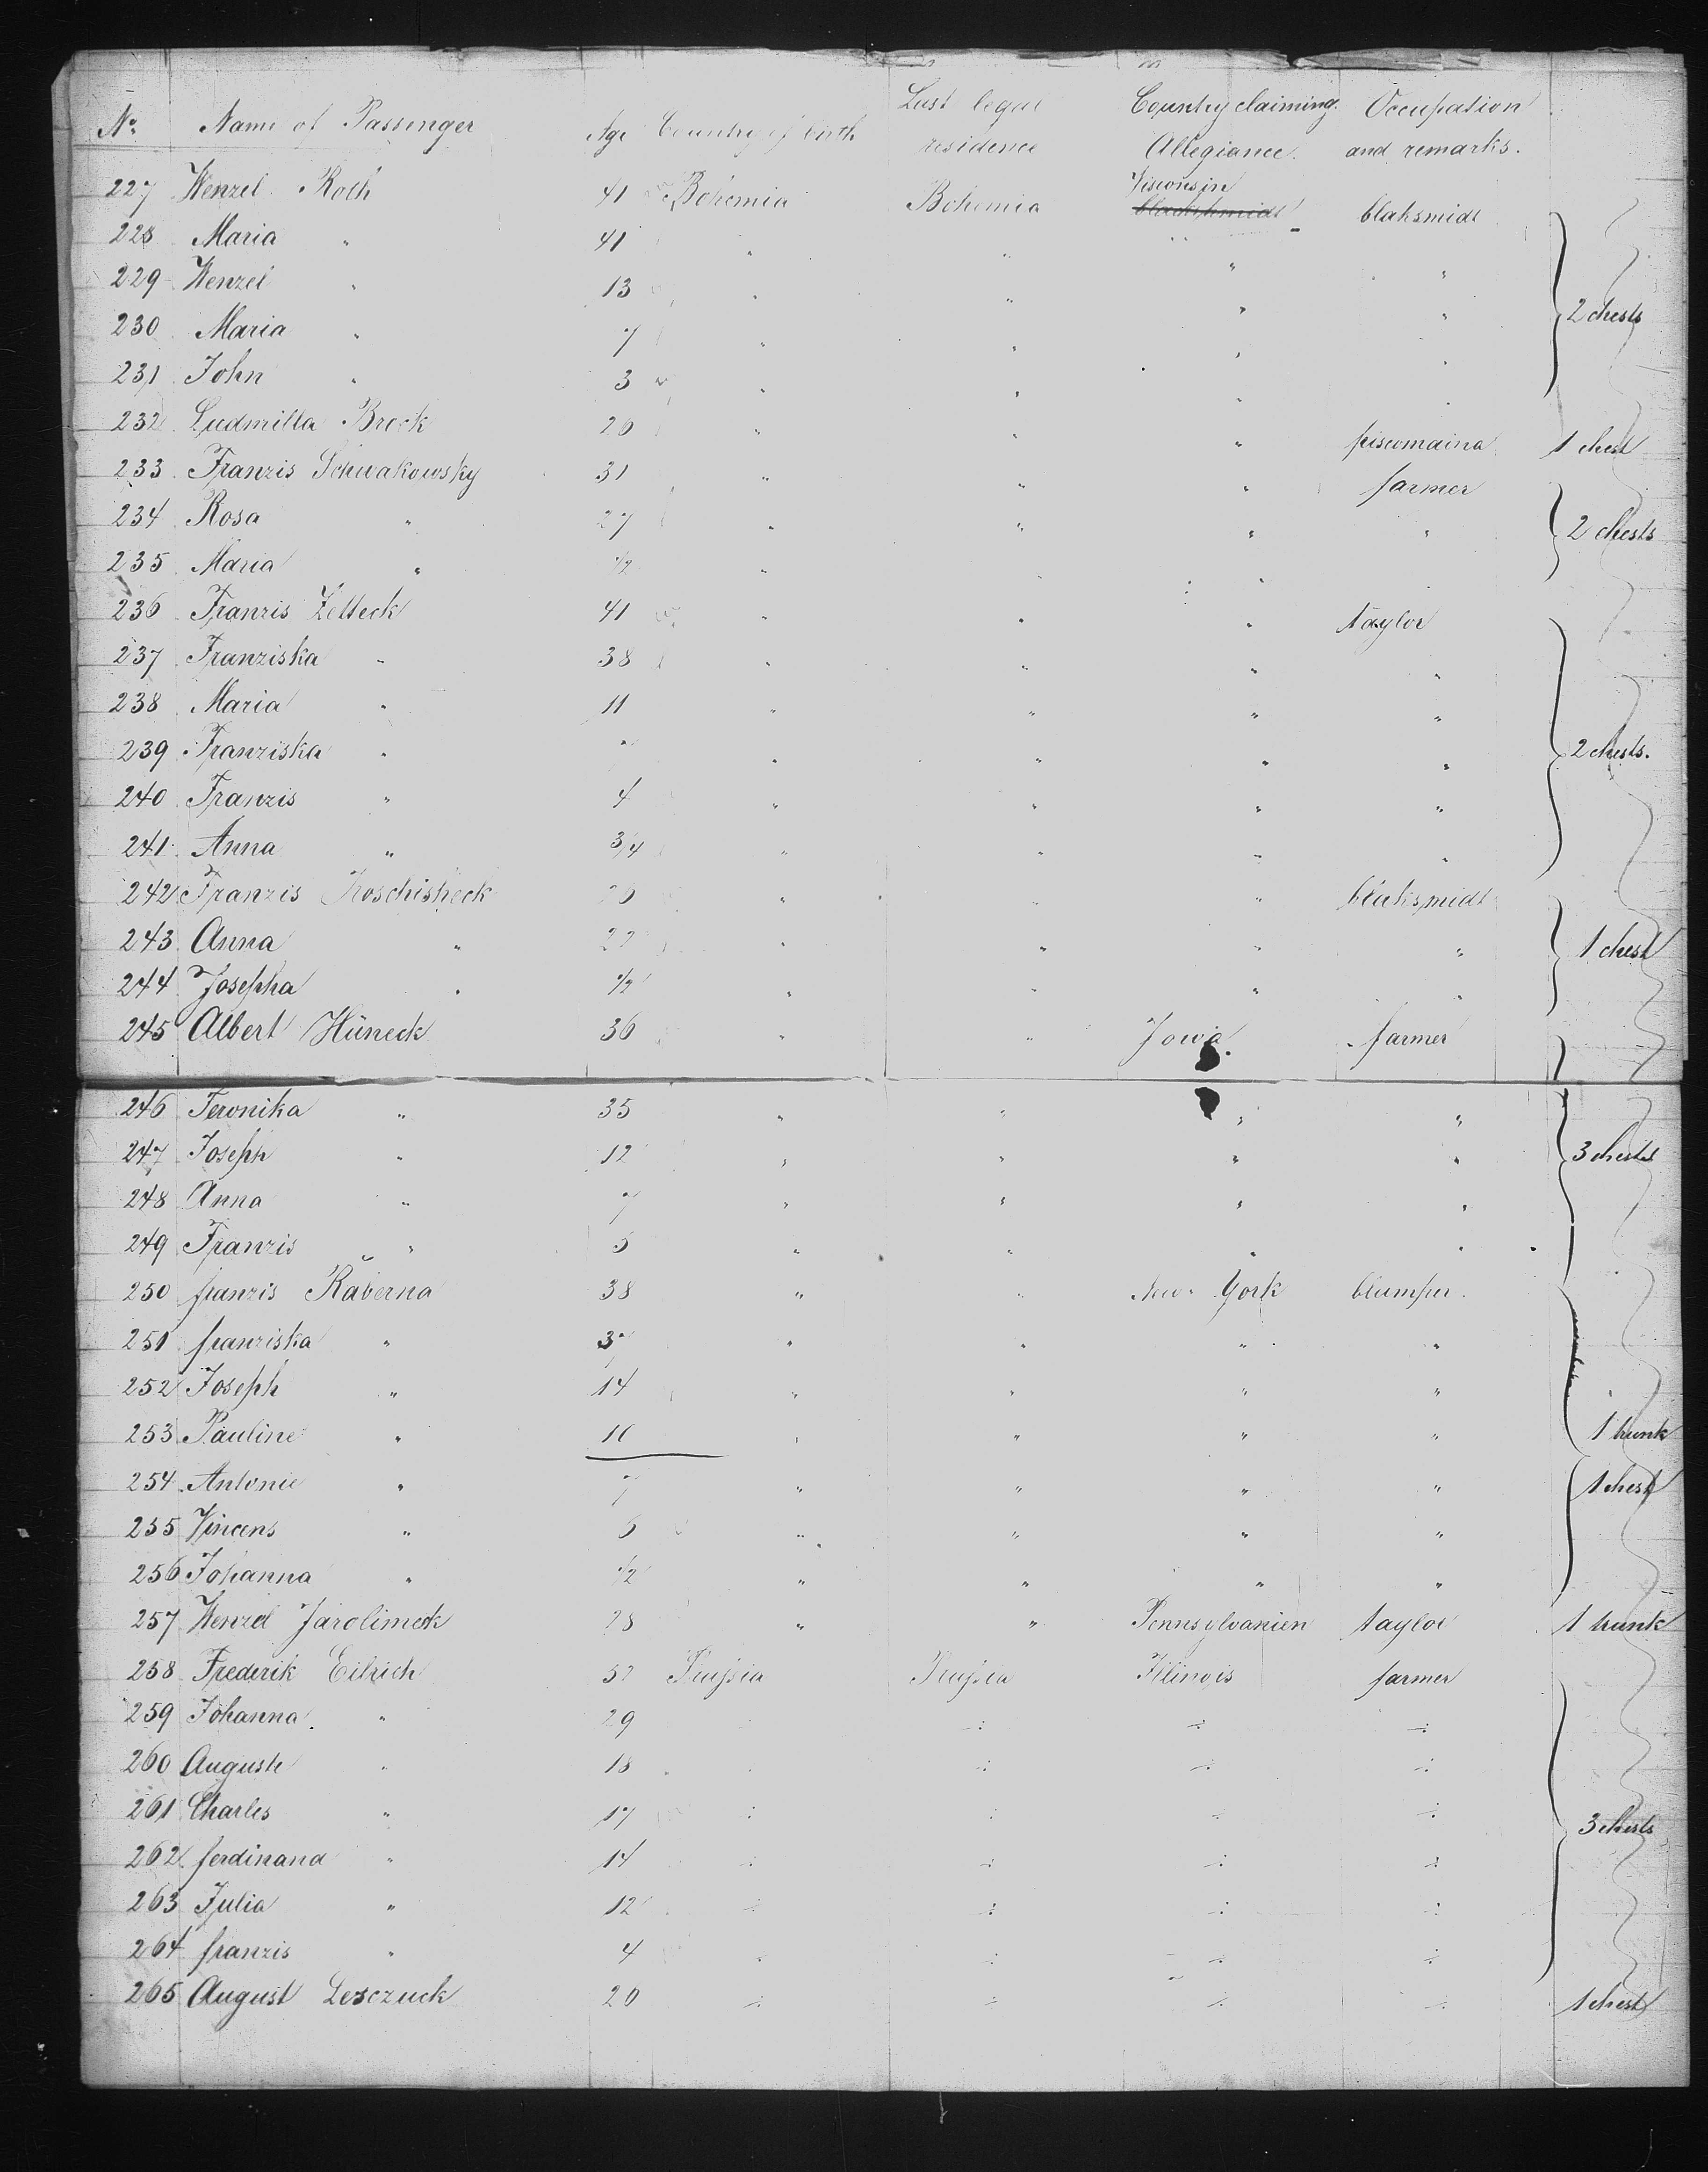 No. Name of Passenger Age Country of birth Last legal residence Country claiming Allegiance. Occupation and remarks.
227 Wenzel Roth 41 Bohemia Bohemia Wisconsin blaksmidt
228 Maria " 41 " " " "
229 Wenzel " 13 " " " "
230 Maria " 7 " " " " 2 chests
231 John " 3 " " " "
232 Ludmilla Brock 26 " " " 1 chest
233 Franzis Schwakowsky 31 " " " farmer
234 Rosa " 27 " " " " 2 chests
235 Maria " 1/2 " " "
236 Franzis Zelteck 41 " " " taylor
237 Franziska " 38 " " " "
238 Maria " 11 " " " "
239 Franziska " " " " " 2 chests.
240 Franzis " 4 " " " "
241 Anna " 3/4 " " " "
242 Franzis Koschisheck " " " blaksmidt
243 Anna " 22 " " " " 1 chest
244 Josepha " 1/2 " " " "
245 Albert Hüneck 36 " " Iowa farmer
246 Feronika " 35 " " " "
247 Joseph " 12 " " " " 3 chests
248 Anna " 7 " " " "
249 Franzis " 5 " " " "
250 franzis Kaberna 38 " " New-York blumper.
251 franziska " " " " "
252 Joseph " 14 " " " "
253 Pauline " " " " " 1 trunk
254 Antonie " 7 " " " " 1 chest
255 Vincens " 6 " " " "
256 Johanna " 1/2 " " " "
257 Wenzel Jarolimek 28 " " Pennsylvanien taylor 1 trunk
258 Frederik Eilrich 52 Prussia Prussia Ilinois farmer
259 Johanna " 29 " " " "
260 Auguste " 18 " " " "
261 Charles " 17 " " " " 3 chests
262 ferdinand " 14 " " " "
263 Julia " 12 " " " "
264 franzis " 4 " " " "
265 August Lesczuck 20 " " " " 1 chest